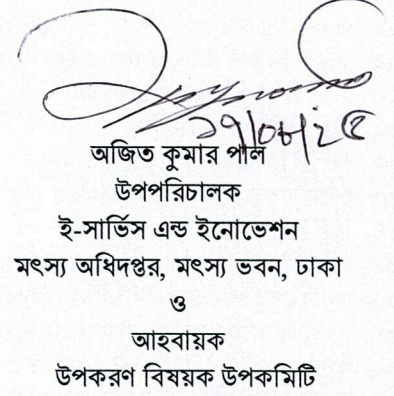 অজিত কুমার পাল
উপপরিচালক
ই-সার্ভিস এন্ড ইনোভেশন
মৎস্য অধিদপ্তর, মৎস্য ভবন, ঢাকা
ও
আহবায়ক
উপকরণ বিষয়ক উপকমিটি